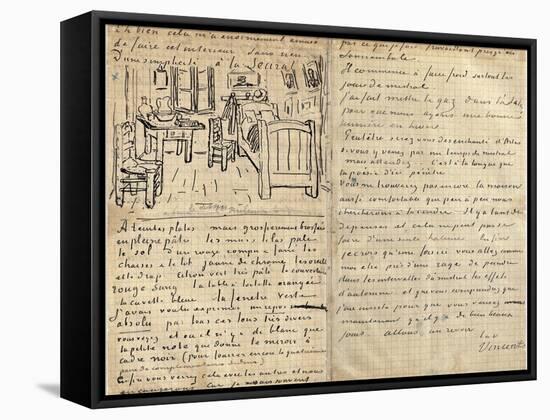 Eh bien cela m'a enormement amusé
de faire cet interieur sans rien
D'une simplicité à la Seurat
A teintes plates mais grossierement brossées
en pleine pâte les murs lilas pale
le sol d'un rouge rompu & fané les
chaises & le lit jaune de chrome les oreillers
et le drap citron vert très pâle la couverture
rouge sang la table à toilette orangée
la cuvette bleue la fenêtre verte
J'avais voulu exprimer un repos
absolu par tous ces tons très divers
vous voyez et où il n'y a de blanc que
la petite note que donne le miroir à
cadre noir (pour fourrer encore la quatrième
paire de complementaires dedans)
Enfin vous verrez cela avec les autres et nous
en causerons car je ne sais souvent
pas ce que je fais travaillant presqu'en
somnambule.
Il commence à faire froid surtout les
jours de mistral.
J'ai fait mettre le gaz dans l'atelier
pour que nous ayons une bonne
lumière en hiver.
Peut être serez vous desenchanté d'Arles
si vous y venez par un temps de mistral
mais attendez.. C'est à la longue que
la poésie d'ici pénètre
Vous ne trouverez pas encore la maison
aussi confortable que peu à peu nous
chercherons à la rendre Il y a tant de
depenses et cela ne peut pas se
faire d'une seule haleine Enfin
je crois qu'une fois ici vous allez comme
moi être pris d'une rage de peindre
dans les intervalles du mistral les effets
d'automne et que vous comprendrez que
j'aie insisté pour que vous veniez
maintenant qu'il y a de bien beaux
jours allons au revoir
t. à v.
Vincent